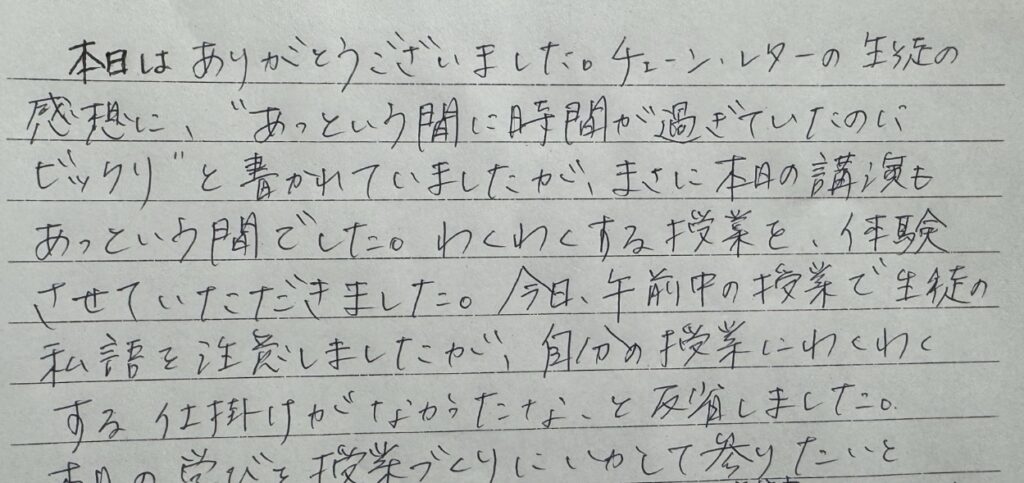 本日はありがとうございました。チェーン・レターの生徒の
感想に、"あっという間に時間が過ぎていたのに
ビックリ"と書かれていましたが、まさに本日の講演も
あっという間でした。わくわくする授業を、体験
させていただきました。今日、午前中の授業で生徒の
私語を注意しましたが、自分の授業にわくわく
する仕掛けがなかったな、と反省しました。
本日の学びを授業づくりにいかして参りたいと